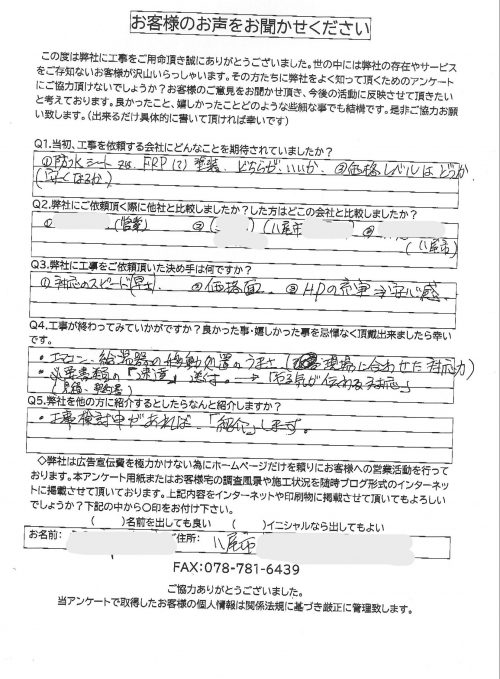 お客様のお声をお聞かせください
この度は弊社に工事をご用命頂き誠にありがとうございました。世の中には弊社の存在やサービス
をご存知ないお客様が沢山いらっしゃいます。その方たちに弊社をよく知って頂くためのアンケート
にご協力頂けないでしょうか?お客様のご意見をお聞かせ頂き、今後の活動に反映させて頂きたい
と考えております。良かったこと、嬉しかったことどのような些細な事でも結構です。是非ご協力お願
い致します。(出来るだけ具体的に書いて頂ければ幸いです)
Q1.当初、工事を依頼する会社にどんなことを期待されていましたか?
①防水シート 又は、FRP 塗装、どちらがいいか、②価格レベルはどうか
(安くなるか)
Q2.弊社にご依頼頂く際に他社と比較しましたか?した方はどこの会社と比較しましたか?
① (営業) ② ( ) (八尾市 ③
(八尾市)
Q3.弊社に工事をご依頼頂いた決め手は何ですか?
①対応のスピード(早さ) ②価格面 ③HPの充実→安心感
Q4.工事が終わってみていかがですか?良かった事・嬉しかった事を忌憚なく頂戴出来ましたら幸い
です。
・エアコン、給湯器の移動処置のうまさ(現場に合わせた対応力)
・必要書類の「迅速」送付。→「やる気が伝わる対応」
(見積、契約書)
Q5.弊社を他の方に紹介するとしたらなんと紹介しますか?
・工事検討中があれば、「紹介」します。
◇弊社は広告宣伝費を極力かけない為にホームページだけを頼りにお客様への営業活動を行って
おります。本アンケート用紙またはお客様宅の調査風景や施工状況を随時ブログ形式のインターネッ
トに掲載させて頂いております。上記内容をインターネットや印刷物に掲載させて頂いてもよろしい
でしょうか?下記の中から〇印をお付け下さい。
( )名前を出しても良い ( )イニシャルなら出してもよい
お名前: ご住所: 八尾市
FAX:078-781-6439
ご協力ありがとうございました。
当アンケートで取得したお客様の個人情報は関係法規に基づき厳正に管理致します。